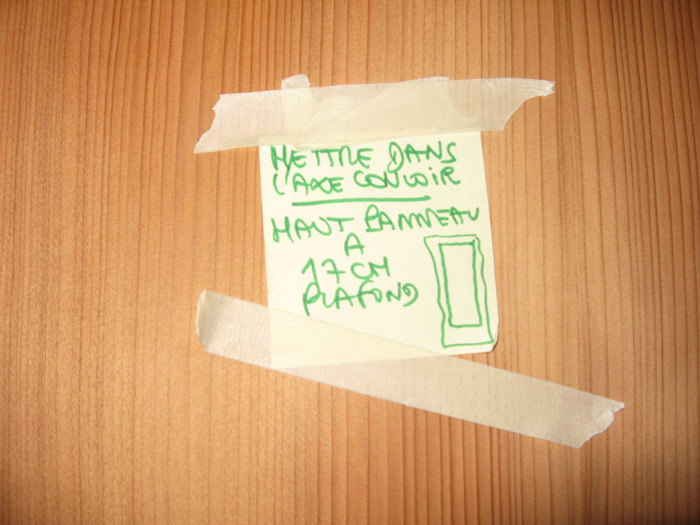 METTRE DANS
L'AXE COULOIR
HAUT PANNEAU
A
17 CM
PLAFOND